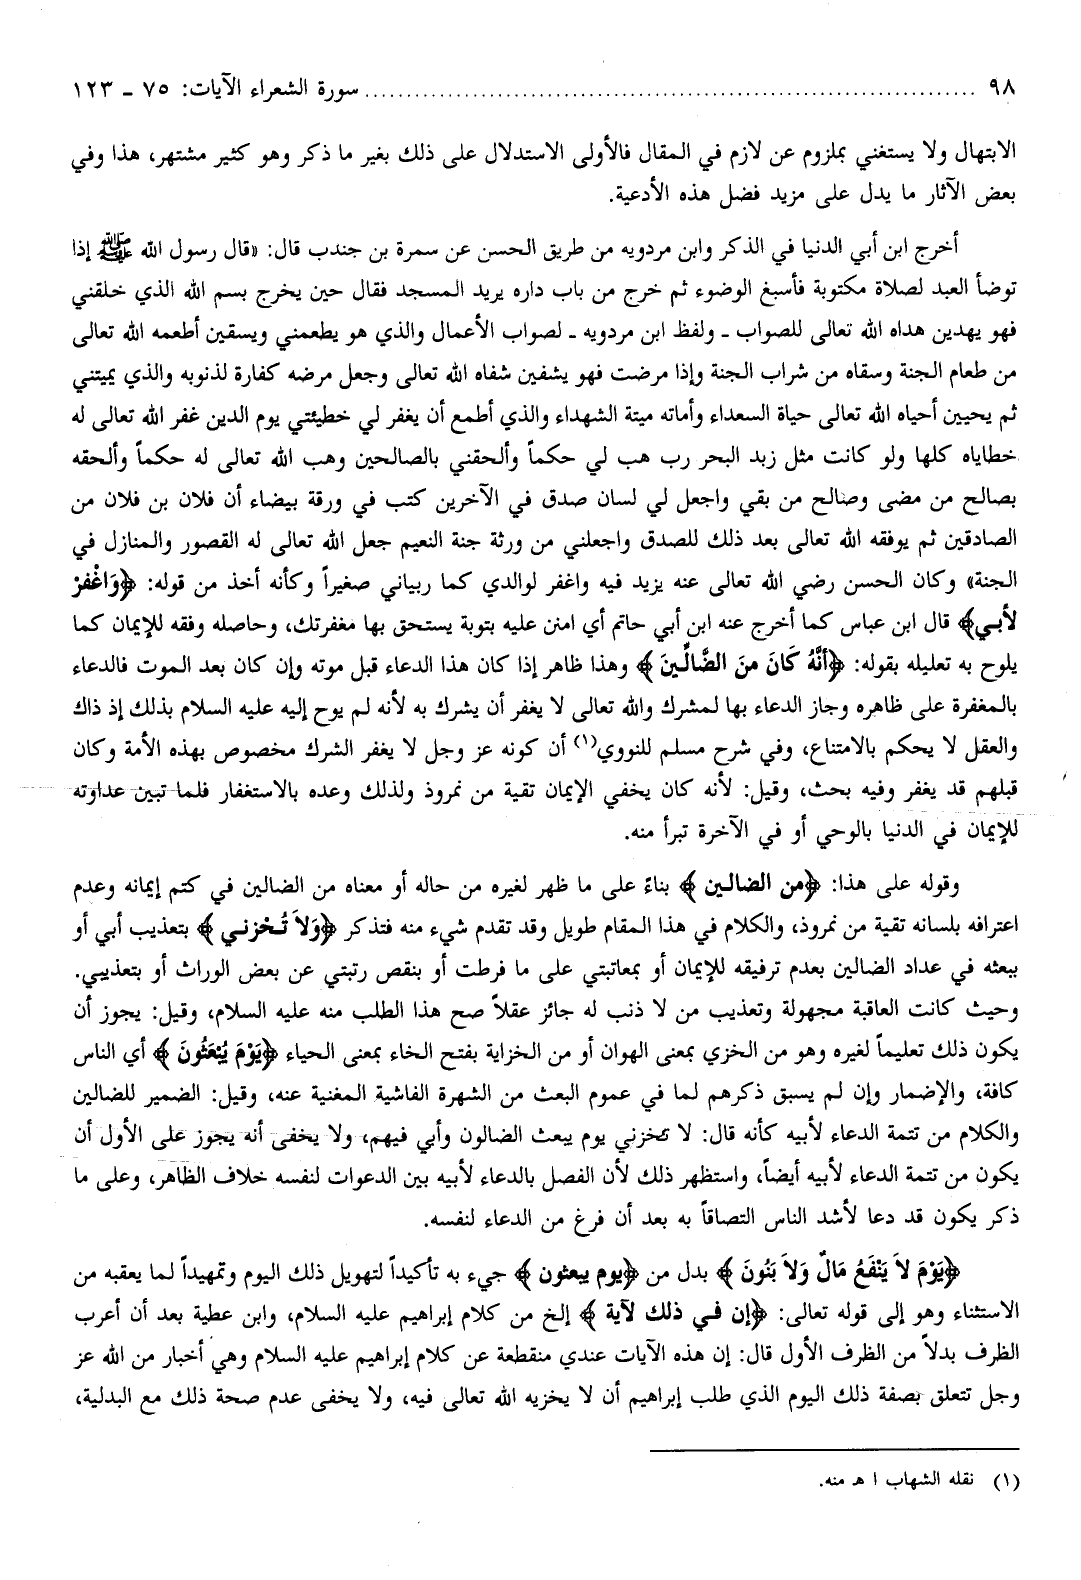 ٩٨ ........................................................................ سورة الشعراء الآيات: ٧٥ ـ ١٢٣
الابتهال ولا يستغني بملزوم عن لازم في المقال فالأولى الاستدلال على ذلك بغير ما ذكر وهو كثير مشتهر، هذا وفي
بعض الآثار ما يدل على مزيد فضل هذه الأدعية.
أخرج ابن أبي الدنيا في الذكر وابن مردويه من طريق الحسن عن سمرة بن جندب قال: «قال رسول الله ﷺ إذا
توضأ العبد لصلاة مكتوبة فأسبغ الوضوء ثم خرج من باب داره يريد المسجد فقال حين يخرج بسم الله الذي خلقني
فهو يهدين هداه الله تعالى للصواب ـ ولفظ ابن مردويه ـ لصواب الأعمال والذي هو يطعمني ويسقين أطعمه الله تعالى
من طعام الجنة وسقاه من شراب الجنة وإذا مرضت فهو يشفين شفاه الله تعالى وجعل مرضه كفارة لذنوبه والذي يميتني
ثم يحيين أحياه الله تعالى حياة السعداء وأماته ميتة الشهداء والذي أطمع أن يغفر لي خطيئتي يوم الدين غفر الله تعالى له
خطاياه كلها ولو كانت مثل زبد البحر رب هب لي حكماً وألحقني بالصالحين وهب الله تعالى له حكماً وألحقه
بصالح من مضى وصالح من بقي واجعل لي لسان صدق في الآخرين كتب في ورقة بيضاء أن فلان بن فلان من
الصادقين ثم يوفقه الله تعالى بعد ذلك للصدق واجعلني من ورثة جنة النعيم جعل الله تعالى له القصور والمنازل في
الجنة» وكان الحسن رضي الله تعالى عنه يزيد فيه واغفر لوالدي كما ربياني صغيراً وكأنه أخذ من قوله: ﴿وَاغْفِرْ
لأبي﴾ قال ابن عباس كما أخرج عنه ابن أبي حاتم أي امنن عليه بتوبة يستحق بها مغفرتك، وحاصله وفقه للإيمان كما
يلوح به تعليله بقوله: ﴿أنَّهُ كَانَ منَ الضَّالِّينَ﴾ وهذا ظاهر إذا كان هذا الدعاء قبل موته وإن كان بعد الموت فالدعاء
بالمغفرة على ظاهره وجاز الدعاء بها لمشرك والله تعالى لا يغفر أن يشرك به لأنه لم يوح إليه عليه السلام بذلك إذ ذاك
والعقل لا يحكم بالامتناع، وفي شرح مسلم للنووي(١) أن كونه عز وجل لا يغفر الشرك مخصوص بهذه الأمة وكان
قبلهم قد يغفر وفيه بحث، وقيل: لأنه كان يخفي الإيمان تقية من نمروذ ولذلك وعده بالاستغفار فلما تبين عداوته
للإيمان في الدنيا بالوحي أو في الآخرة تبرأ منه.
وقوله على هذا: ﴿من الضالين﴾ بناءً على ما ظهر لغيره من حاله أو معناه من الضالين في كتم إيمانه وعدم
اعترافه بلسانه تقية من نمروذ، والكلام في هذا المقام طويل وقد تقدم شيء منه فتذكر ﴿وَلاَ تُخْزني﴾ بتعذيب أبي أو
ببعثه في عداد الضالين بعدم ترفيقه للإيمان أو بمعاتبتي على ما فرطت أو بنقص رتبتي عن بعض الوراث أو بتعذيبي.
وحيث كانت العاقبة مجهولة وتعذيب من لا ذنب له جائز عقلاً صح هذا الطلب منه عليه السلام، وقيل: يجوز أن
يكون ذلك تعليماً لغيره وهو من الخزي بمعنى الهوان أو من الخزاية بفتح الخاء بمعنى الحياء ﴿يَوْمَ يُبْعَثُونَ﴾ أي الناس
كافة، والإضمار وإن لم يسبق ذكرهم لما في عموم البعث من الشهرة الفاشية المغنية عنه، وقيل: الضمير للضالين
والكلام من تتمة الدعاء لأبيه كأنه قال: لا تخزني يوم يبعث الضالون وأبي فيهم، ولا يخفى أنه يجوز على الأول أن
يكون من تتمة الدعاء لأبيه أيضاً، واستظهر ذلك لأن الفصل بالدعاء لأبيه بين الدعوات لنفسه خلاف الظاهر، وعلى ما
ذكر يكون قد دعا لأشد الناس التصاقاً به بعد أن فرغ من الدعاء لنفسه.
﴿يَوْمَ لاَ يَنْفَعُ مَالٌ وَلاَ بَنُونَ﴾ بدل من ﴿يوم يبعثون﴾ جيء به تأكيداً لتهويل ذلك اليوم وتمهيداً لما يعقبه من
الاستثناء وهو إلى قوله تعالى: ﴿إن في ذلك لآية﴾ إلخ من كلام إبراهيم عليه السلام، وابن عطية بعد أن أعرب
الظرف بدلاً من الظرف الأول قال: إن هذه الآيات عندي منقطعة عن كلام إبراهيم عليه السلام وهي أخبار من الله عز
وجل تتعلق بصفة ذلك اليوم الذي طلب إبراهيم أن لا يخزيه الله تعالى فيه، ولا يخفى عدم صحة ذلك مع البدلية،
(١) نقله الشهاب ا هـ منه.